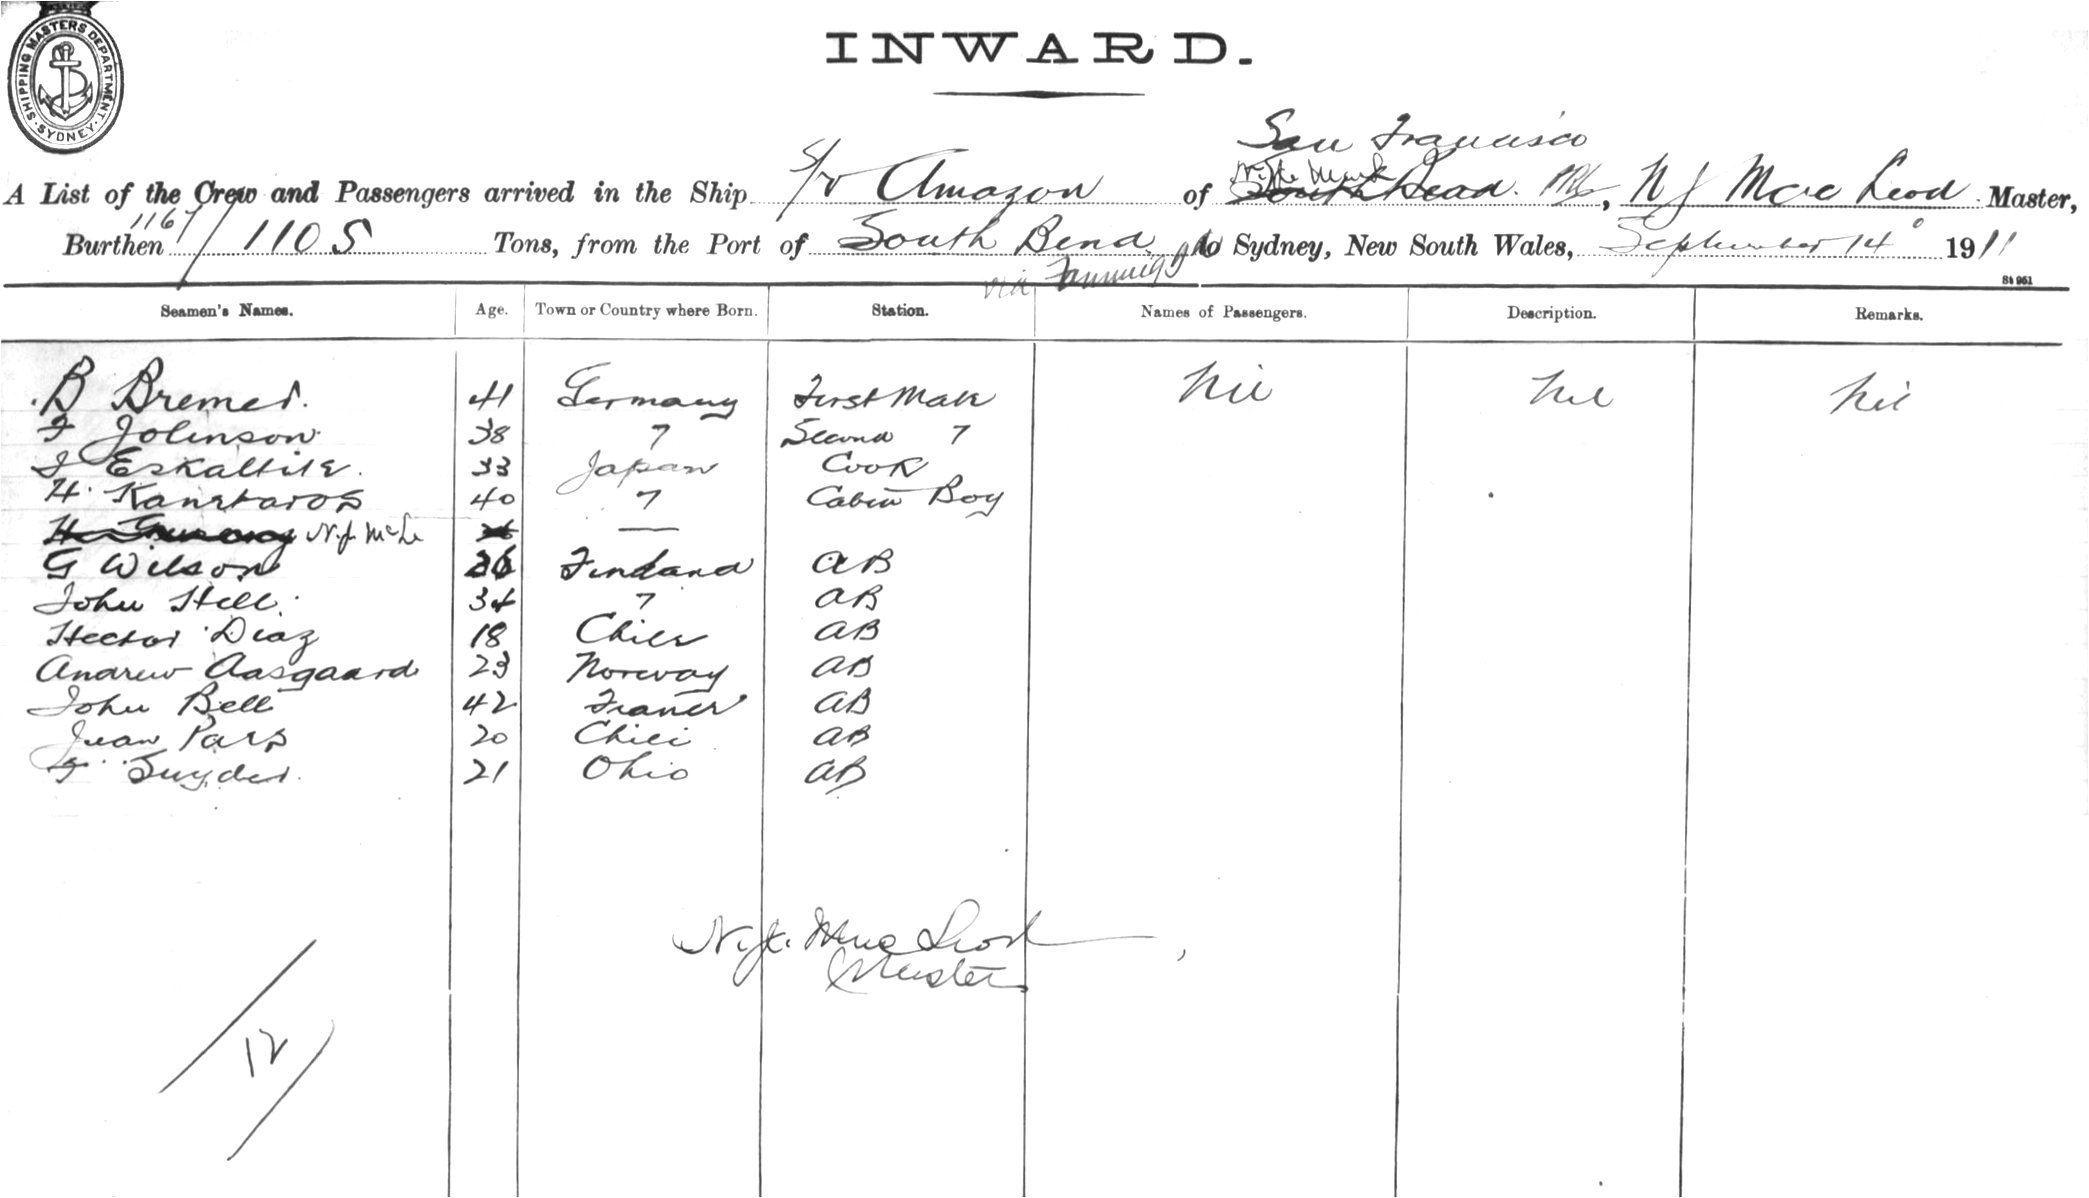 SHIPPING MASTERS DEPARTMENT. SYDNEY.
INWARD.
San Francisco
A List of the Crew and Passengers arrived in the Ship S/v Amazon of N J Mac Leod Master,
1167/
Burthen 1105 Tons, from the Port of South Bend to Sydney, New South Wales, September 14 1911
via Fanning Id
St 961
Seamen's Names. Age. Town or Country where Born. Station. Names of Passengers. Description. Remarks.
B Bremer. 41 Germany First Mate Nil Nil Nil
F Johnson 38 " Second "
Japan 33 Cook
H. 40 " Cabin Boy
N.J. McL —
G Wilson 36 Finland AB
John Hill. 34 " AB
Hector Diaz 18 Chile AB
Andrew Aasgaard 23 Norway AB
John Bell 42 France AB
Juan Pars 20 Chili AB
F Snyder. 21 Ohio AB
N.J. Mac Leod
Master
12